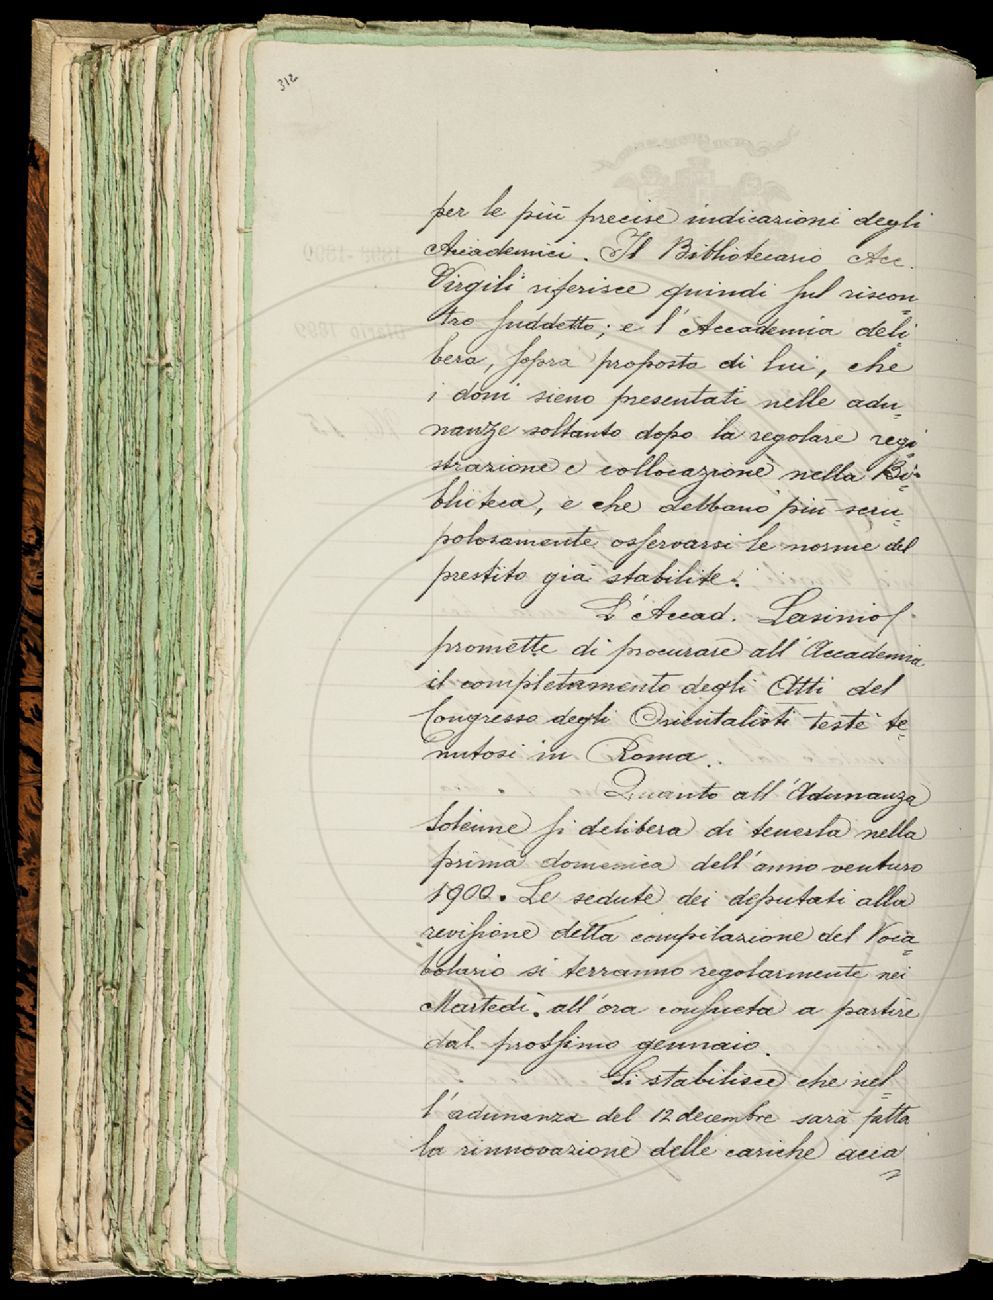 312
per le più precise indicazioni degli
Accademici. Il Bibliotecario Acc.
Virgili riferisce quindi sul riscon=
tro suddetto; e l'Accademia deli=
bera, sopra proposta di lui, che
i doni sieno presentati nelle adu=
nanze soltanto dopo la regolare regi=
strazione e collocazione nella Bi=
blioteca, e che debbano più scru=
polosamente osservarsi le norme del
prestito già stabilite.
L'Accad. Lasinio
promette di procurare all'Accademia
il completamento degli Atti del
Congresso degli Orientalisti testè te=
nutosi in Roma.
Quanto all'Adunanza
solenne si delibera di tenerla nella
prima domenica dell'anno venturo
1900. Le sedute dei deputati alla
revisione della compilazione del Voca=
bolario si terranno regolarmente nei
Martedì, all'ora consueta a partire
dal prossimo gennaio.
Si stabilisce che nel=
l'adunanza del 12 decembre sarà fatta
la rinnovazione delle cariche acca=